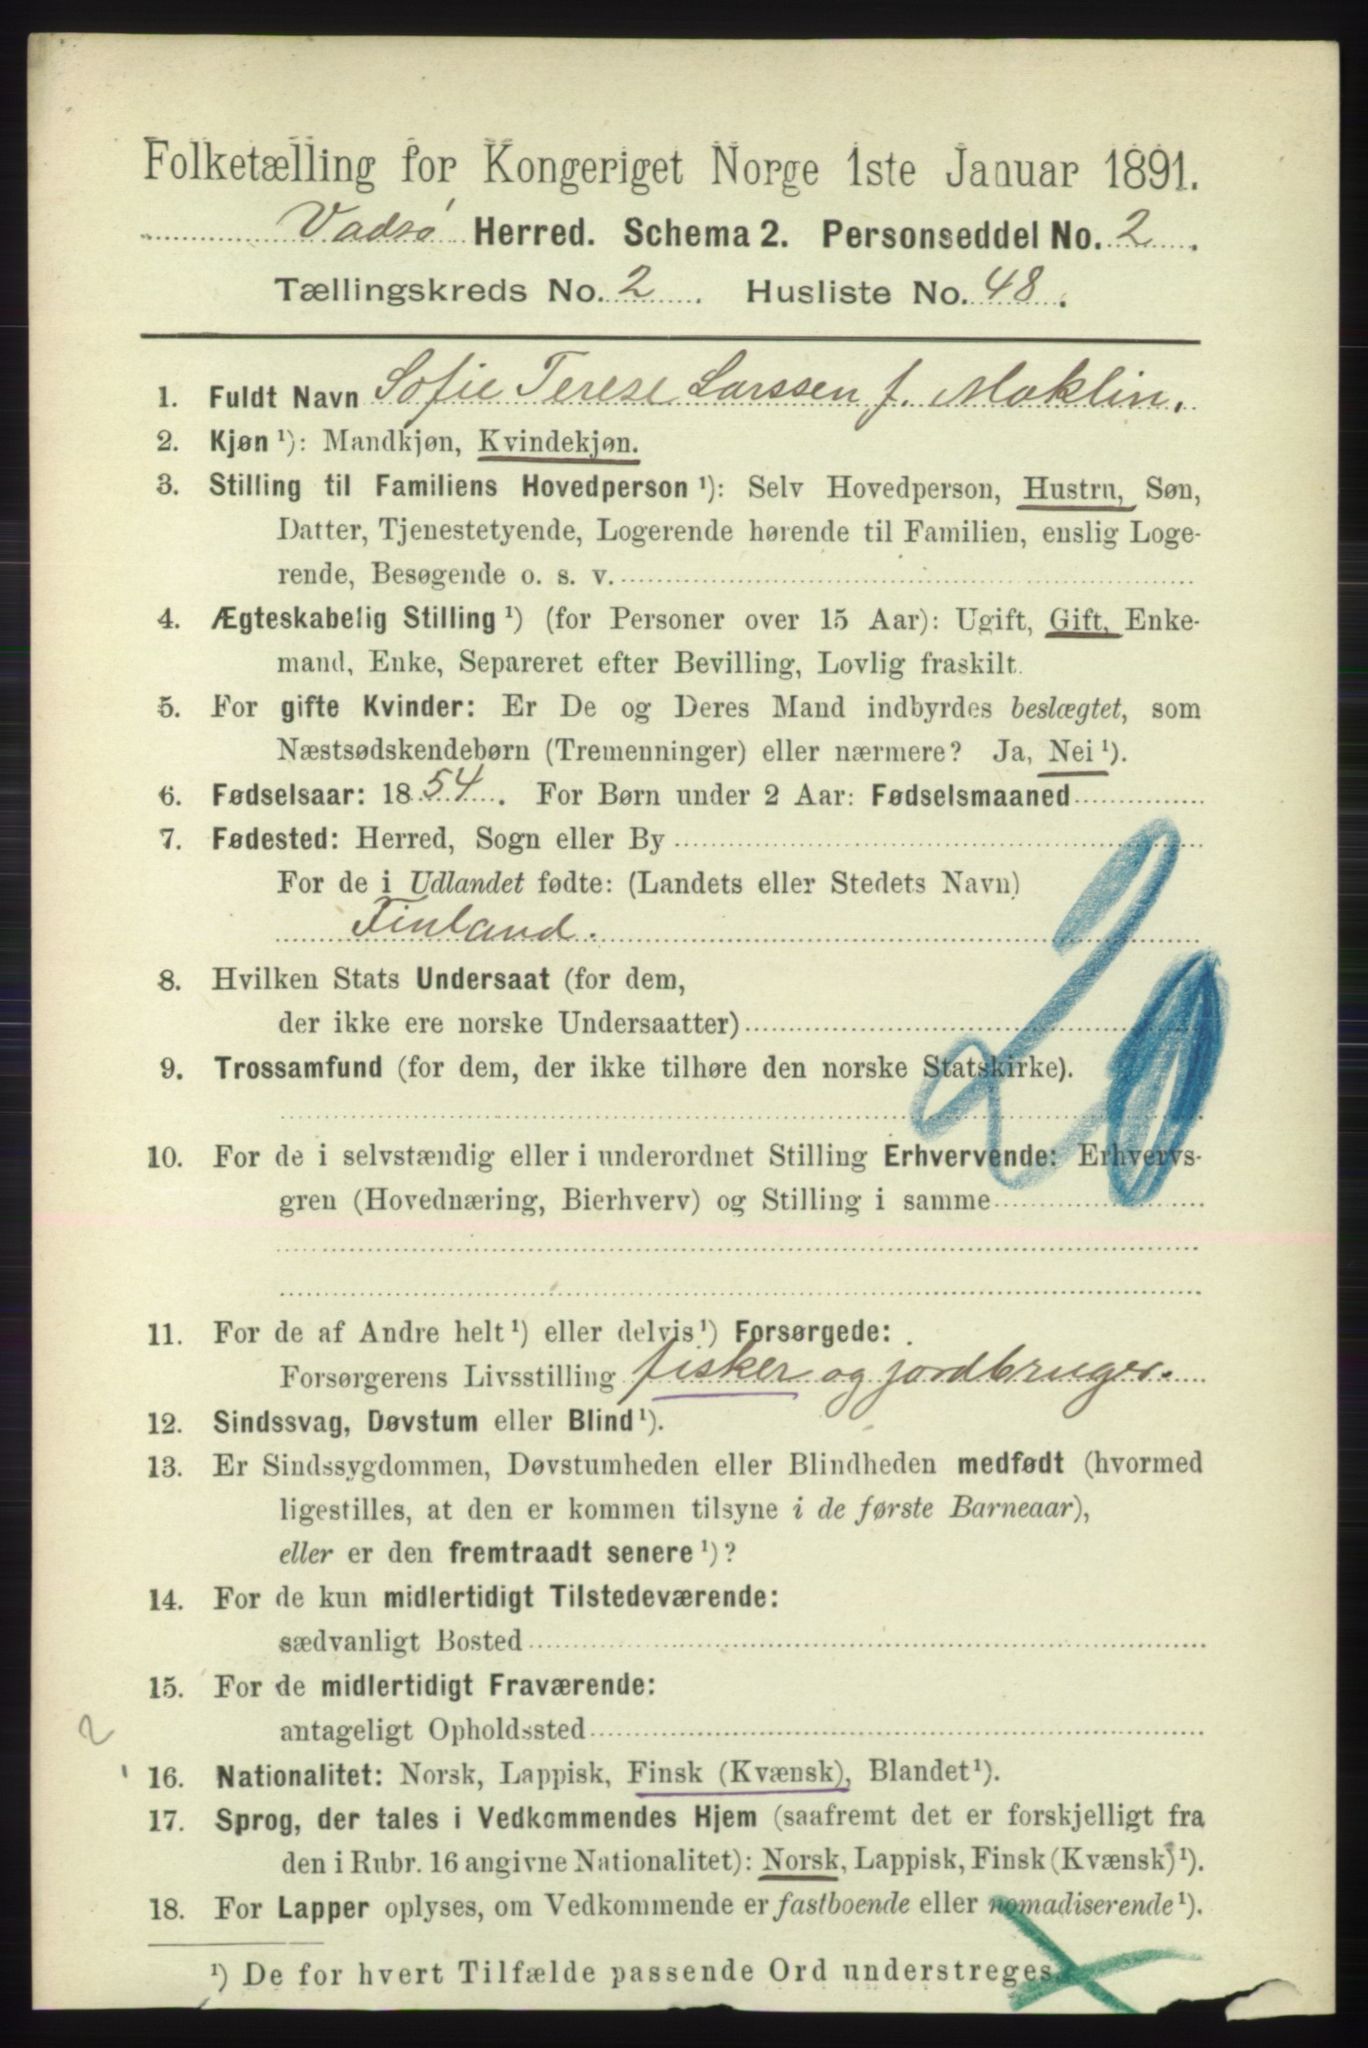 Folketælling for Kongeriget Norge 1ste Januar 1891.
Vadsø Herred. Schema 2. Personseddel No. 2.
Tællingskreds No. 2. Husliste No. 48.
1. Fuldt Navn Sofie Terese Larssen f. Moklin.
2. Kjøn ¹): Mandkjøn, Kvindekjøn.
3. Stilling til Familiens Hovedperson ¹): Selv Hovedperson, Hustru, Søn,
Datter, Tjenestetyende, Logerende hørende til Familien, enslig Loge-
rende, Besøgende o. s. v.
4. Ægteskabelig Stilling ¹) (for Personer over 15 Aar): Ugift, Gift, Enke-
mand, Enke, Separeret efter Bevilling, Lovlig fraskilt.
5. For gifte Kvinder: Er De og Deres Mand indbyrdes beslægtet, som
Næstsødskendebørn (Tremenninger) eller nærmere? Ja, Nei ¹).
6. Fødselsaar: 1854. For Børn under 2 Aar: Fødselsmaaned
7. Fødested: Herred, Sogn eller By
For de i Udlandet fødte: (Landets eller Stedets Navn)
Finland.
20
8. Hvilken Stats Undersaat (for dem,
der ikke ere norske Undersaatter)
9. Trossamfund (for dem, der ikke tilhøre den norske Statskirke).
10. For de i selvstændig eller i underordnet Stilling Erhvervende: Erhvervs-
gren (Hovednæring, Bierhverv) og Stilling i samme
11. For de af Andre helt ¹) eller delvis ¹) Forsørgede:
Forsørgerens Livsstilling fisker og jordbruger.
12. Sindssvag, Døvstum eller Blind ¹).
13. Er Sindssygdommen, Døvstumheden eller Blindheden medfødt (hvormed
ligestilles, at den er kommen tilsyne i de første Barneaar),
eller er den fremtraadt senere ¹)?
14. For de kun midlertidigt Tilstedeværende:
sædvanligt Bosted
15. For de midlertidigt Fraværende:
antageligt Opholdssted
2
16. Nationalitet: Norsk, Lappisk, Finsk (Kvænsk), Blandet ¹).
17. Sprog, der tales i Vedkommendes Hjem (saafremt det er forskjelligt fra
den i Rubr. 16 angivne Nationalitet): Norsk, Lappisk, Finsk (Kvænsk) ¹).
18. For Lapper oplyses, om Vedkommende er fastboende eller nomadiserende ¹).
¹) De for hvert Tilfælde passende Ord understreges.